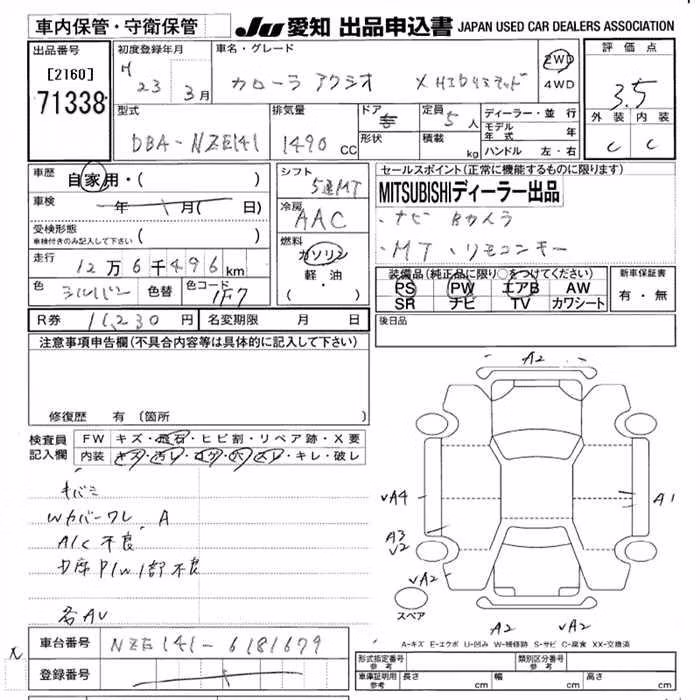 車内保管・守衛保管
JU 愛知 出品申込書 JAPAN USED CAR DEALERS ASSOCIATION
出品番号
[2160]
71338
初度登録年月
H 23年 3月
車名・グレード
カローラ アクシオ X HIDリミテッド
2WD
4WD
評価点
3.5
外装 内装
C C
型式
DBA-NZE141
排気量
1490 CC
ドア
形状
定員 5人
積載 kg
ディーラー・並行
モデル年式 年
ハンドル 左・右
車歴 自家用・( )
車検 年 月( 日)
受検形態
車検付きのみ記入して下さい ( )
走行 12万6千496km
色 シルバー 色替 色コード 1F7
シフト
5速MT
冷房
AAC
燃料
ガソリン
軽油
( ・ )
セールスポイント(正常に機能するものに限ります)
MITSUBISHIディーラー出品
・ナビ Bカメラ
・MT ・リモコンキー
装備品(純正品に限り○をつけてください)
PS PW エアB AW
SR ナビ TV カワシート
新車保証書
有・無
後日品
R券 11,230円 名変期限 月 日
注意事項申告欄(不具合内容等は具体的に記入して下さい)
修復歴 有(箇所 )
検査員
記入欄
FW キズ・飛石・ヒビ割・リペア跡・X要
内装 キズ・汚レ・コゲ・穴・スレ・キレ・破レ
キバミ
Wカバーワレ A
A/C不良
D席P/W1部不良
各AV
A2
vA4
A1
A3
v2
vA2
スペア
A2
vA2
A-キズ E-エクボ U-凹み W-補修跡 S-サビ C-腐食 XX-交換済
車台番号 NZE141-6181679
登録番号
形式指定番号
参考
類別区分番号
参考
車庫証明用
参考
長さ cm 幅 cm 高さ cm